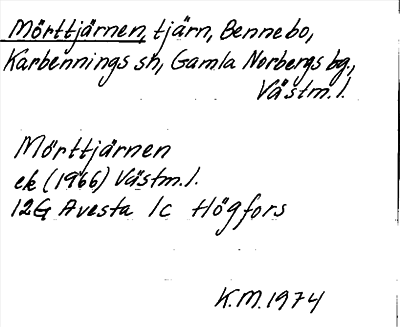 Mörttjärnen, tjärn, Bennebo,
Karbennings sn, Gamla Norbergs bg.,
Västm.l.
Mörttjärnen
ek (1966) Västm.l.
12G Avesta 1c Högfors
K.M. 1974